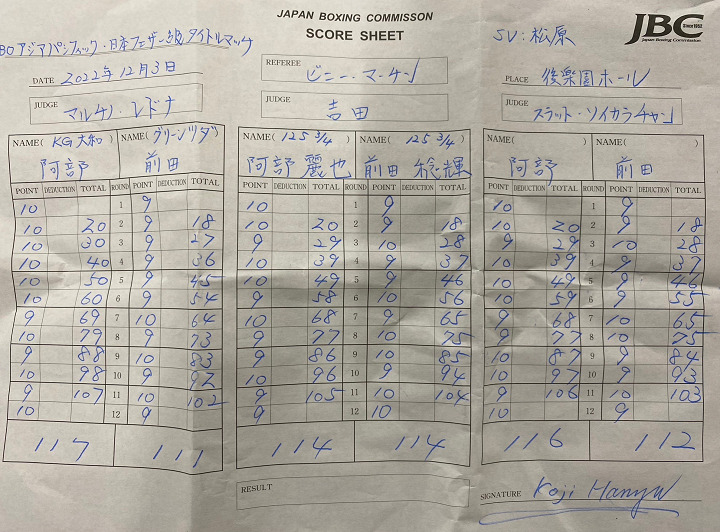 JAPAN BOXING COMMISSON
SCORE SHEET
SV:松原
JBC
Since 1952
Japan Boxing Commission
BOアジアパシフィック・日本フェザー級タイトルマッチ
DATE 2022年12月3日
REFEREE ビニー・マーチン
PLACE 後楽園ホール
JUDGE マルチノ・レドナ
JUDGE 吉田
JUDGE スラット・ソイカラチャン
NAME( KG大和 ) NAME( グリーンツダ
阿部 前田
NAME( 125 3/4 ) NAME( 125 3/4 )
阿部 麗也 前田 稔輝
NAME( ) NAME( )
阿部 前田
POINT DEDUCTION TOTAL ROUND POINT DEDUCTION TOTAL
10 1 9
10 20 2 9 18
10 30 3 9 27
10 40 4 9 36
10 50 5 9 45
10 60 6 9 54
9 69 7 10 64
10 79 8 9 73
9 88 9 10 83
10 98 10 9 92
9 107 11 10 102
10 12 9
117 111
POINT DEDUCTION TOTAL ROUND POINT DEDUCTION TOTAL
10 1 9
10 20 2 9 18
9 29 3 10 28
10 39 4 9 37
10 49 5 9 46
9 58 6 10 56
10 68 7 9 65
9 77 8 10 75
9 86 9 10 85
10 96 10 9 94
9 105 11 10 104
9 12 10
114 114
POINT DEDUCTION TOTAL ROUND POINT DEDUCTION TOTAL
10 1 9
10 20 2 9 18
9 29 3 10 28
10 39 4 9 37
10 49 5 9 46
10 59 6 9 55
9 68 7 10 65
9 77 8 10 75
10 87 9 9 84
10 97 10 9 93
9 106 11 10 103
10 12 9
116 112
RESULT
SIGNATURE Koji Hanyu